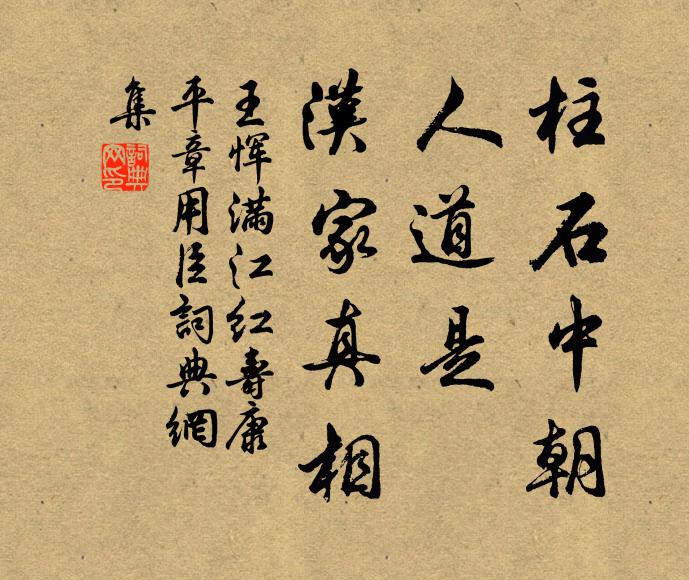 柱石中朝
人道是
漢家真相
王恽滿江红壽康
平章用臣詞典網
集
詞典網印